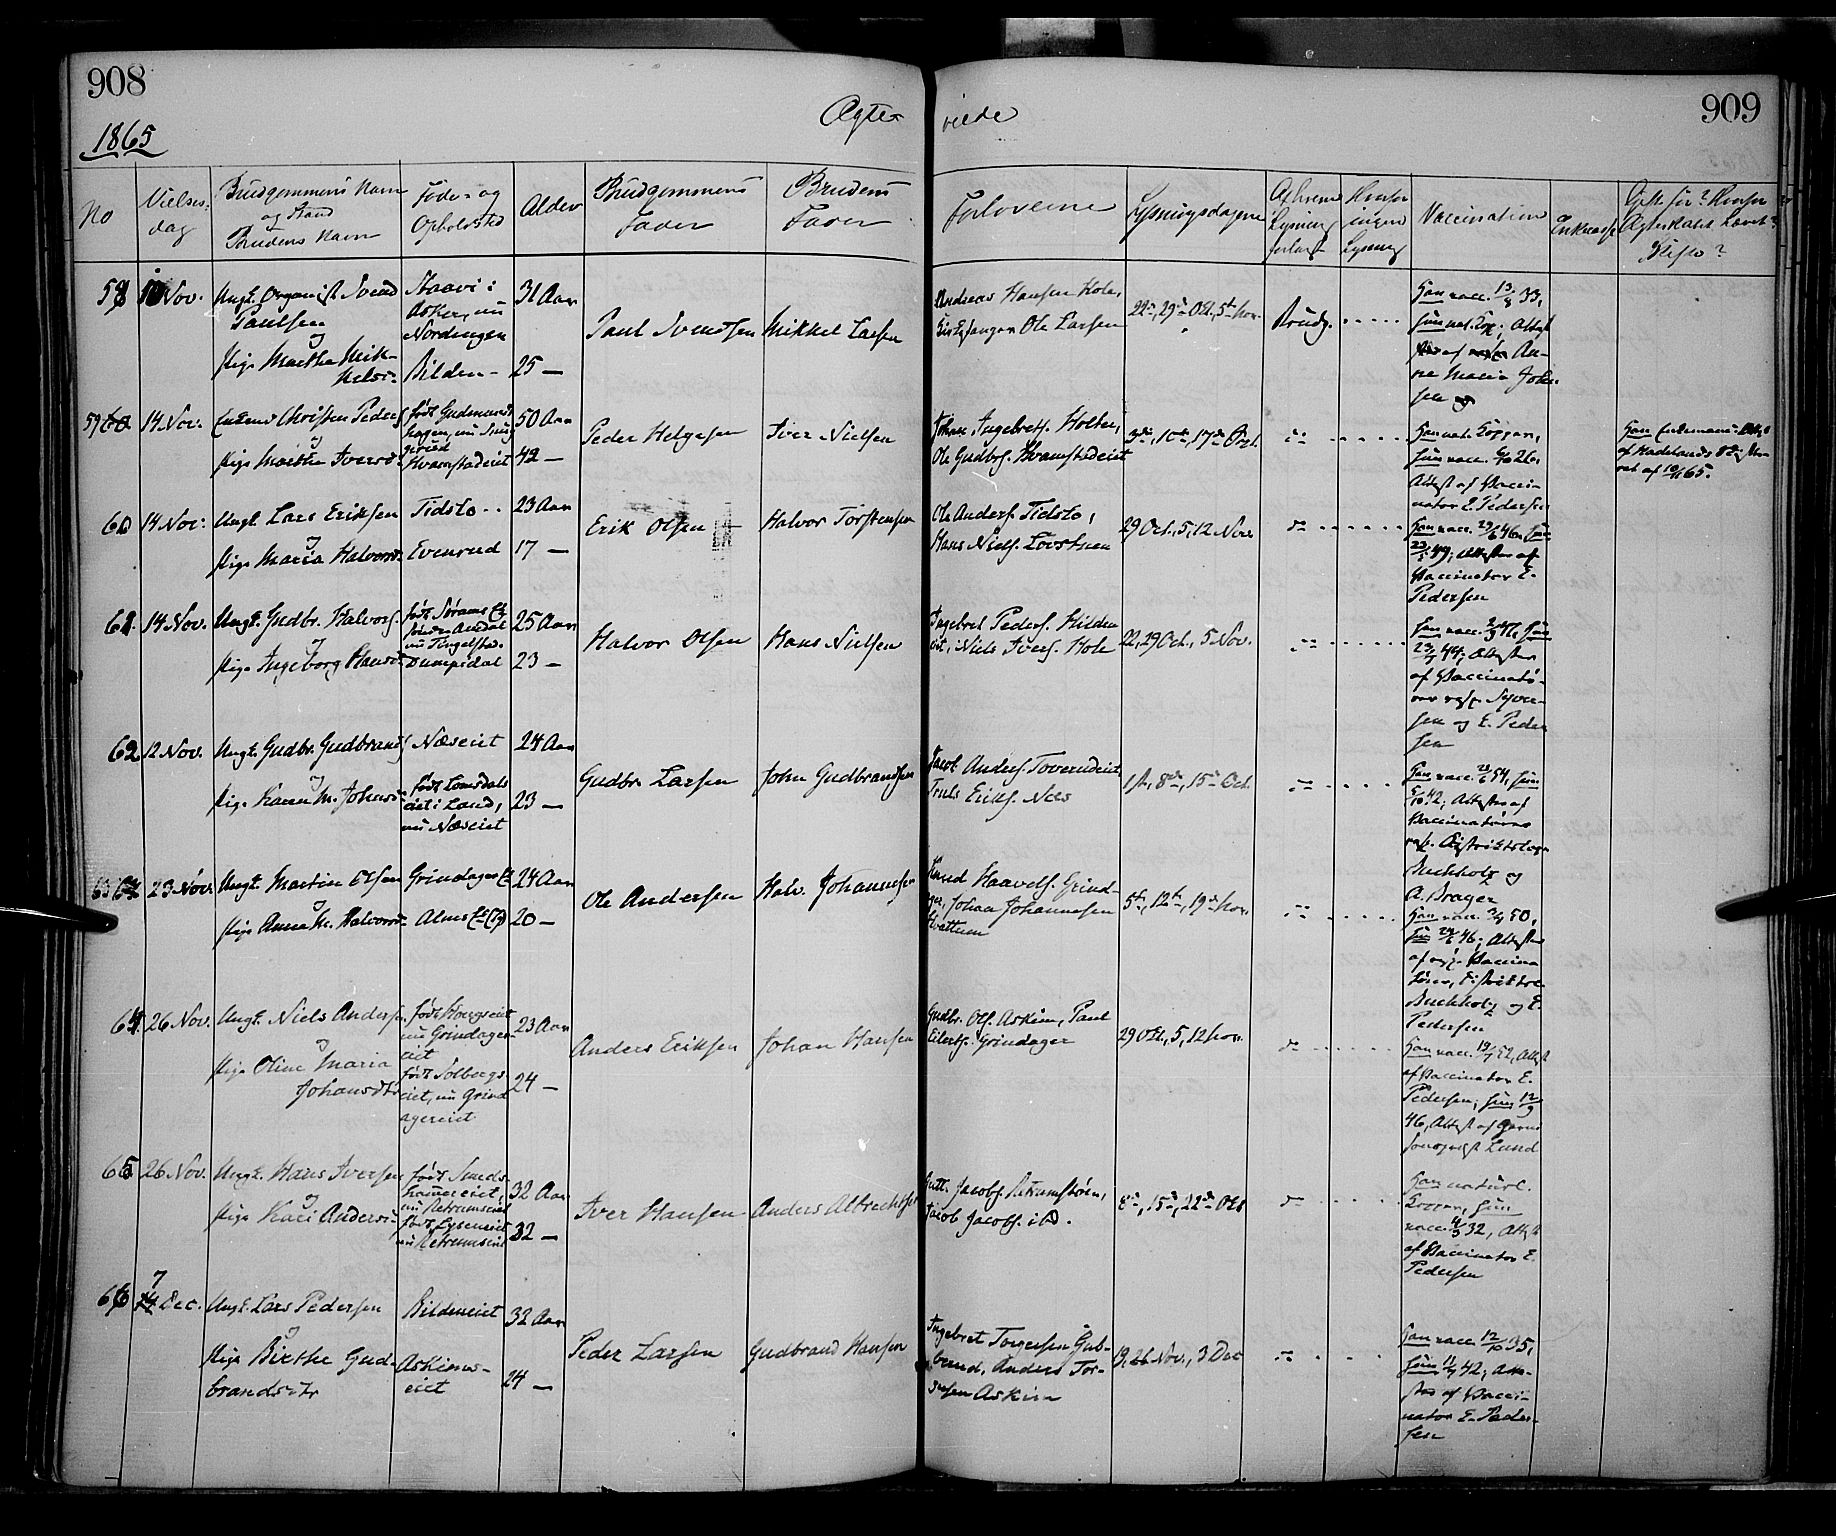 908
909
Ægte- viede
1865
No
Vielses-
dag
Brudgommens Navn
og Stand
Brudens Navn
Føde- og
Opholdsted
Alder
Brudgommens
Fader
Brudens
Fader
Forloverne
Lysningsdagene
Af hvem
Lysning
forlangt
Hvorfor
ingen
Lysning
Vaccination
Gift før? Hvorfor
Ægteskabet Lovet?
Skifte?
58 Nov. Ungk. Organist Svend
Paulsen
og
Pige Marthe Mik-
kelsd.
Staavi i
Asker, nu
Nordengen
Bilden -
31 Aar
25 —
Paul Svendsen
Mikkel Larsen
Andreas Hansen Hole,
Kirkesanger Ole Larsen
22de, 29de Oct, 5te Nov.
Brudg.
Han vacc. 13/8 33,
af
An-
ne Marie Johan
sen og
59 14 Nov. Enkem. Christen Peders.
Pige Marthe Iversd.
født Gudmunds
hagen, nu
Hvamstadeiet
50 Aar
42 —
Peder Helgesen
Iver Nielsen
Johan Ingebrets. Holter,
Ole Gudbrs. Hvamstadeiet
3de, 10de, 17de Oct.
do
Han nat. Kopper,
Hun vacc. 26,
Attest af Vacci-
nator E. Pedersen
Han Enkemand. Att.
af Hadelands
ret af 10/11 65.
60 14 Nov. Ungk. Lars Eriksen
Pige Maria Halvorsd.
Tidslo
Evenrud
23 Aar
17 —
Erik Olsen
Halvor Torstensen
Ole Anders. Tidslo,
Hans Niels. Lovstuen
29 Oct., 5, 12 Nov.
do
Han vacc. 46, Hun
49; Attester af
Vaccinator E.
Pedersen
61 14 Nov. Ungk. Gudbr. Halvors.
Pige Ingeborg Hansd.
nu Tingelstad
Dumpidal
25 Aar
23 —
Halvor Olsen
Hans Nielsen
Ingebret Peders. Hilden
eiet, Niels Ivers. Hole
22, 29 Oct., 5 Nov.
do
Han vacc. 47, Hun
44; Attester
af Vaccinatø-
rer resp. Syver-
sen og E. Peder
sen
62 12 Nov. Ungk. Gudbr. Gudbrands.
Pige Karen M. Johansd.
Næseiet
født Lomsdals
eiet i Land,
nu Næseiet
24 Aar
23 —
Gudbr. Larsen
John Gudbrandsen
Jacob Anders. Toverudeiet,
Truls Eriks. Næs
1ste, 8de, 15de Oct.
do
Han vacc. 54, Hun
5/10 42, Attester af
Vaccinatørerne
resp. Distriktslæge
Buchholz og
A. Brager
63 23 Nov. Ungk. Martin Olsen
Pige Anne M. Halvorsd.
Grindager
Alms
24 Aar
20 —
Ole Andersen
Halv. Johannesen
Knud Haavels. Grind-
ager, Johan Johannesen
Hvattum
5te, 12te, 19de Nov.
do
Han vacc. 50,
Hun 46; Attester
af resp. Vaccina
tører, Distriktsl.
Buchholz og E.
Pedersen
64 26 Nov. Ungk. Niels Anders.
Pige Oline Maria
Johansdtr
født Haugseiet
nu Grindager-
eiet
født Solbergs-
eiet, nu Grind
agereiet
23 Aar
24 —
Anders Eriksen
Johan Hansen
Gudbr. Ols. Askim, Paul
Eilerts. Grindager
29 Oct., 5, 12 Nov.
do
Han vacc. 52, Attest
af Vaccinator E.
Pedersen; Hun 12/9
46, Attest af
Lund
65 26 Nov. Ungk. Hans Iversen
Pige Kari Andersd.
født
nu Retrumseiet
født Lyseneiet
nu Retrumseiet
32 Aar
32 —
Iver Hansen
Anders Albrechtsen
Gutt. Jacobs.
Jacob Jacobs. ibd.
8de, 15de, 22de Oct
do
Han naturl.
Kopper, Hun
vacc. 32, Attest
af Vaccinator E.
Pedersen
66 7 Dec. Ungk. Lars Pedersen
Pige Birthe Gud-
brandsdtr
Bildeneiet
Askims-
eiet
32 Aar
24 —
Peder Larsen
Gudbrand Hansen
Ingebret Torgersen Gub-
berud, Anders Tor-
gersen Askim
19, 26 Nov., 3 Dec
do
Han vacc. 12/10 35,
Hun 42; Atte-
ster af Vacci-
nator E. Peder-
sen